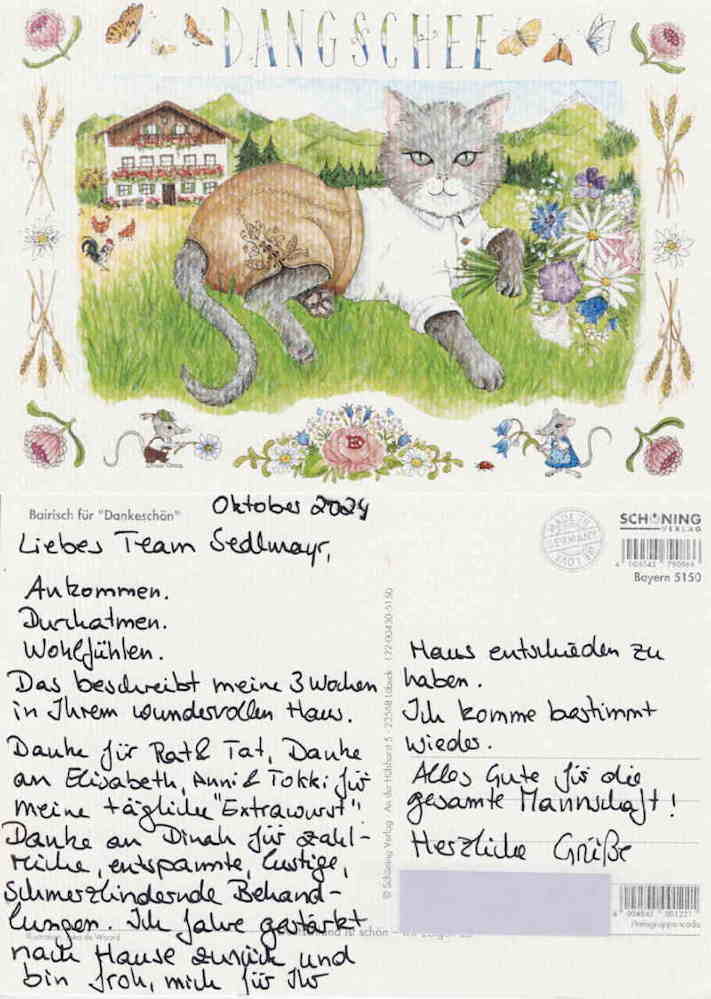 DANGSCHEE
Bairisch für "Dankeschön"
Oktober 2024
SCHÖNING
VERLAG
Bayern 5150
Liebes Team Sedlmayr,
Ankommen.
Durchatmen.
Wohlfühlen.
Das beschreibt meine 3 Wochen
in Ihrem wundervollen Haus.
Danke für Rat & Tat, Danke
an Elisabeth, Anni & Tokki für
meine tägliche "Extrawurst".
Danke an Dinah für zahl-
reiche, entspannte, lustige,
schmerzlindernde Behand-
lungen. Ich fahre gestärkt
nach Hause zurück und
bin froh, mich für Ihr
© Schöning Verlag · An der Hülshorst 5 · 23568 Lübeck · 172-00430-5150
Haus entschieden zu
haben.
Ich komme bestimmt
wieder.
Alles Gute für die
gesamte Mannschaft!
Herzliche Grüße